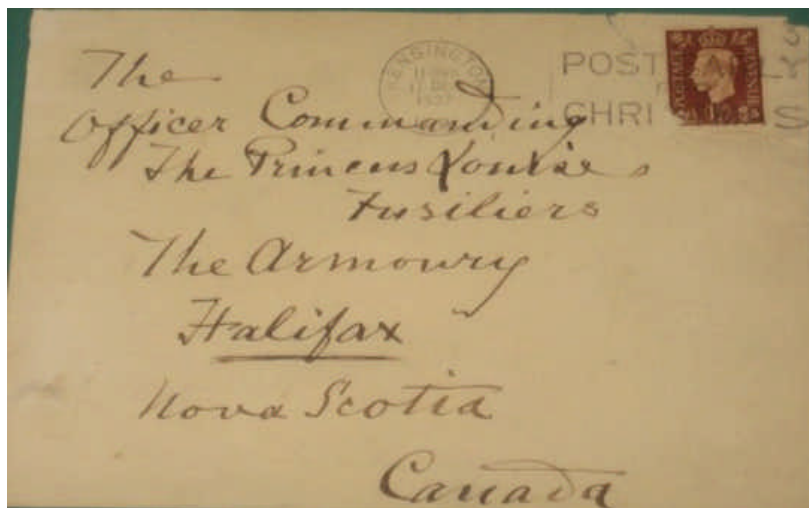 KENSINGTON
1937
POST
CHRI
POSTAGE
The
Officer Commanding
The Princess Louise
Fusiliers
The Armoury
Halifax
Nova Scotia
Canada